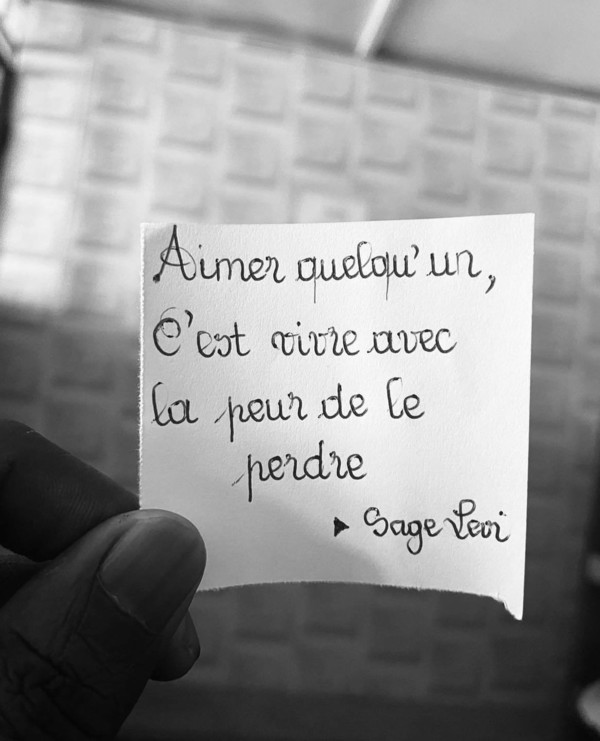 Aimer quelqu'un,
C'est vivre avec
la peur de le
perdre
► Sage Levi